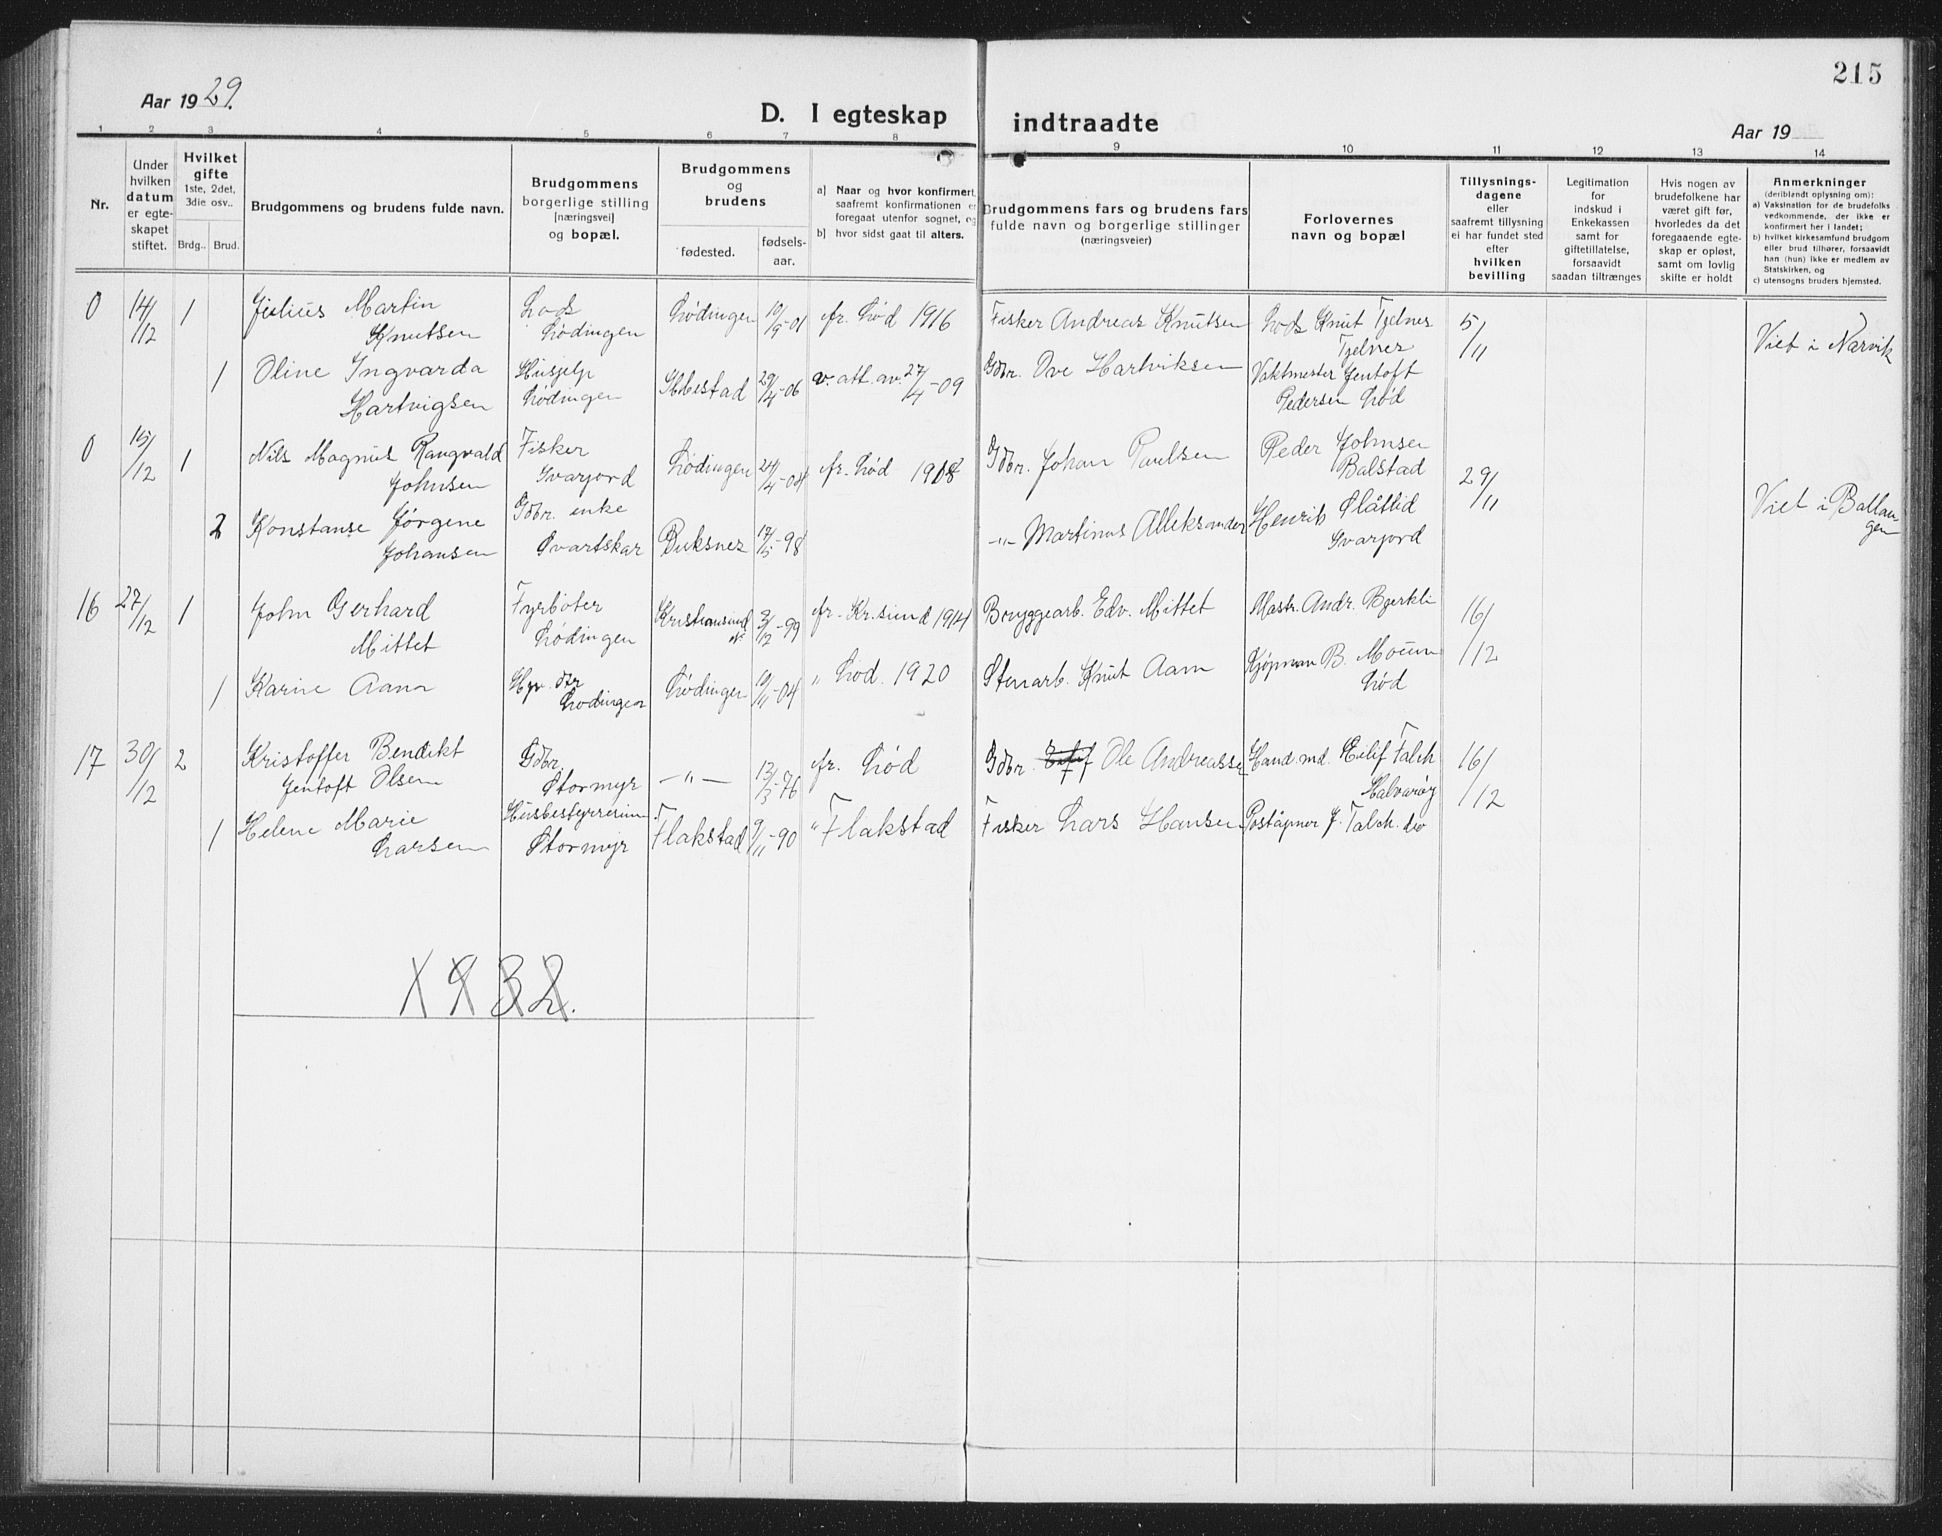 215
Aar 1929.
D. I egteskap indtraadte
Aar 19
1 2 3 4 5 6 7 8 9 10 11 12 13 14
Nr.
Under hvilken datum er egte-skapet stiftet.
Hvilket gifte
1ste, 2det, 3die osv..
Brdg.. Brud.
Brudgommens og brudens fulde navn.
Brudgommens borgerlige stilling [næringsvei] og bopæl.
Brudgommens og brudens
fødested.
fødsels-aar.
a] Naar og hvor konfirmert,
saafremt konfirmationen er
foregaat utenfor sognet, og
b] hvor sidst gaat til alters.
Brudgommens fars og brudens fars
fulde navn og borgerlige stillinger
(næringsveier)
Forlovernes
navn og bopæl
Tillysnings-
dagene
eller
saafremt tillysning
ei har fundet sted
efter
hvilken
bevilling
Legitimation
for
indskud i
Enkekassen
samt for
giftetillatelse,
forsaavidt
saadan tiltrænges
Hvis nogen av
brudefolkene har
været gift før,
hvorledes da det
foregaaende egte-
skap er opløst,
samt om lovlig
skifte er holdt
Anmerkninger
(deriblandt oplysning om):
a) Vaksination for de brudefolks
vedkommende, der ikke er
konfirmert her i landet;
b) hvilket kirkesamfund brudgom
eller brud tilhører, forsaavidt
han (hun) ikke er medlem av
Statskirken, og
c) utensogns bruders hjemsted.
0 14/12 1 Julius Martin Knutsen Lods Lødingen Lødingen 10/9-01 fr. Lød 1916 Fisker Andreas Knutsen Lods Knut Tjelnes Tjelnes 5/11 Viet i Narvik
1 Oline Ingvarda Hartvigsen Husjelp Lødingen 29/4-06 v. att. av. 27/4-09 Gdbr. Ove Hartviksen Vaktmester Jentoft Pedersen Lød
0 15/12 1 Nils Magnus Rangvald Johnsen Fisker Svarjord Lødingen 24/4-04 fr. Lød 1918 Gdbr. Johan Paulsen Peder Johnsen Balstad 29/11 Viet i Ballangen
2 Konstanse Jørgene Johansen Gdbr. enke Svartskar Buksnes 17/5-98 -"- Martinus Alleksander Henrik Slåttlid Svarjord
16 27/12 1 John Gerhard Mittet Fyrbøter Lødingen Kristiansund N. 3/12-99 fr. Kr.sund 1914 Bryggearb. Edv. Mittet Mastr. Andr. Bjerkli 16/12
1 Karine Aam Lødingen Lødingen 19/11-04 " Lød. 1920 Stenarb. Knut Aam Kjøpman B. Moum Lød
17 30/12 2 Kristoffer Bendikt Jentoft Olsen Gdbr. Stormyr -"- 13/5-76 fr. Lød Gdbr. Ole Andreassen Hand.md. Eilif Falch Halvarøy 16/12
1 Helene Marie Larsen Husbestyrerinn. Stormyr Flakstad 9/11-90 " Flakstad Fisker Lars Hansen Poståpner J. Falch. do
1932.